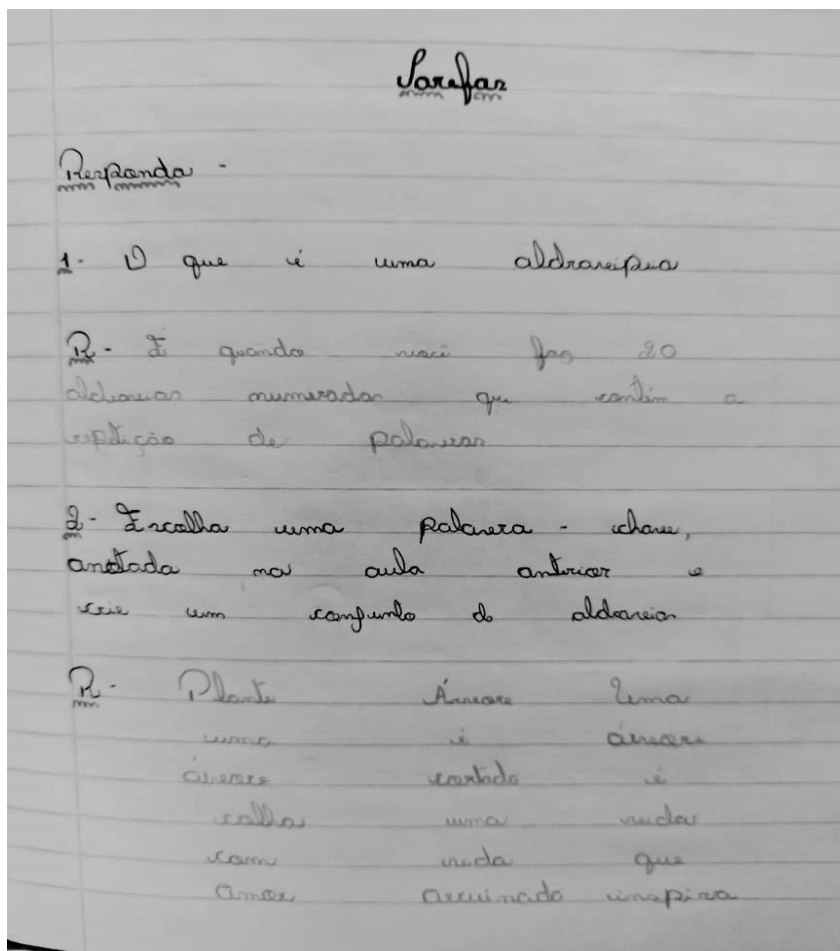 Tarefas
Responda -
1- O que é uma aldravipeia
R- É quando você faz 20
aldravias numeradas que contém a
repetição de palavras
2- Escolha uma palavra - chave,
anotada na aula anterior e
crie um conjunto de aldravias
R- Plante Árvore Uma
uma é árvore
árvore cortada é
colha uma vida
com vida que
amor arruinada inspira